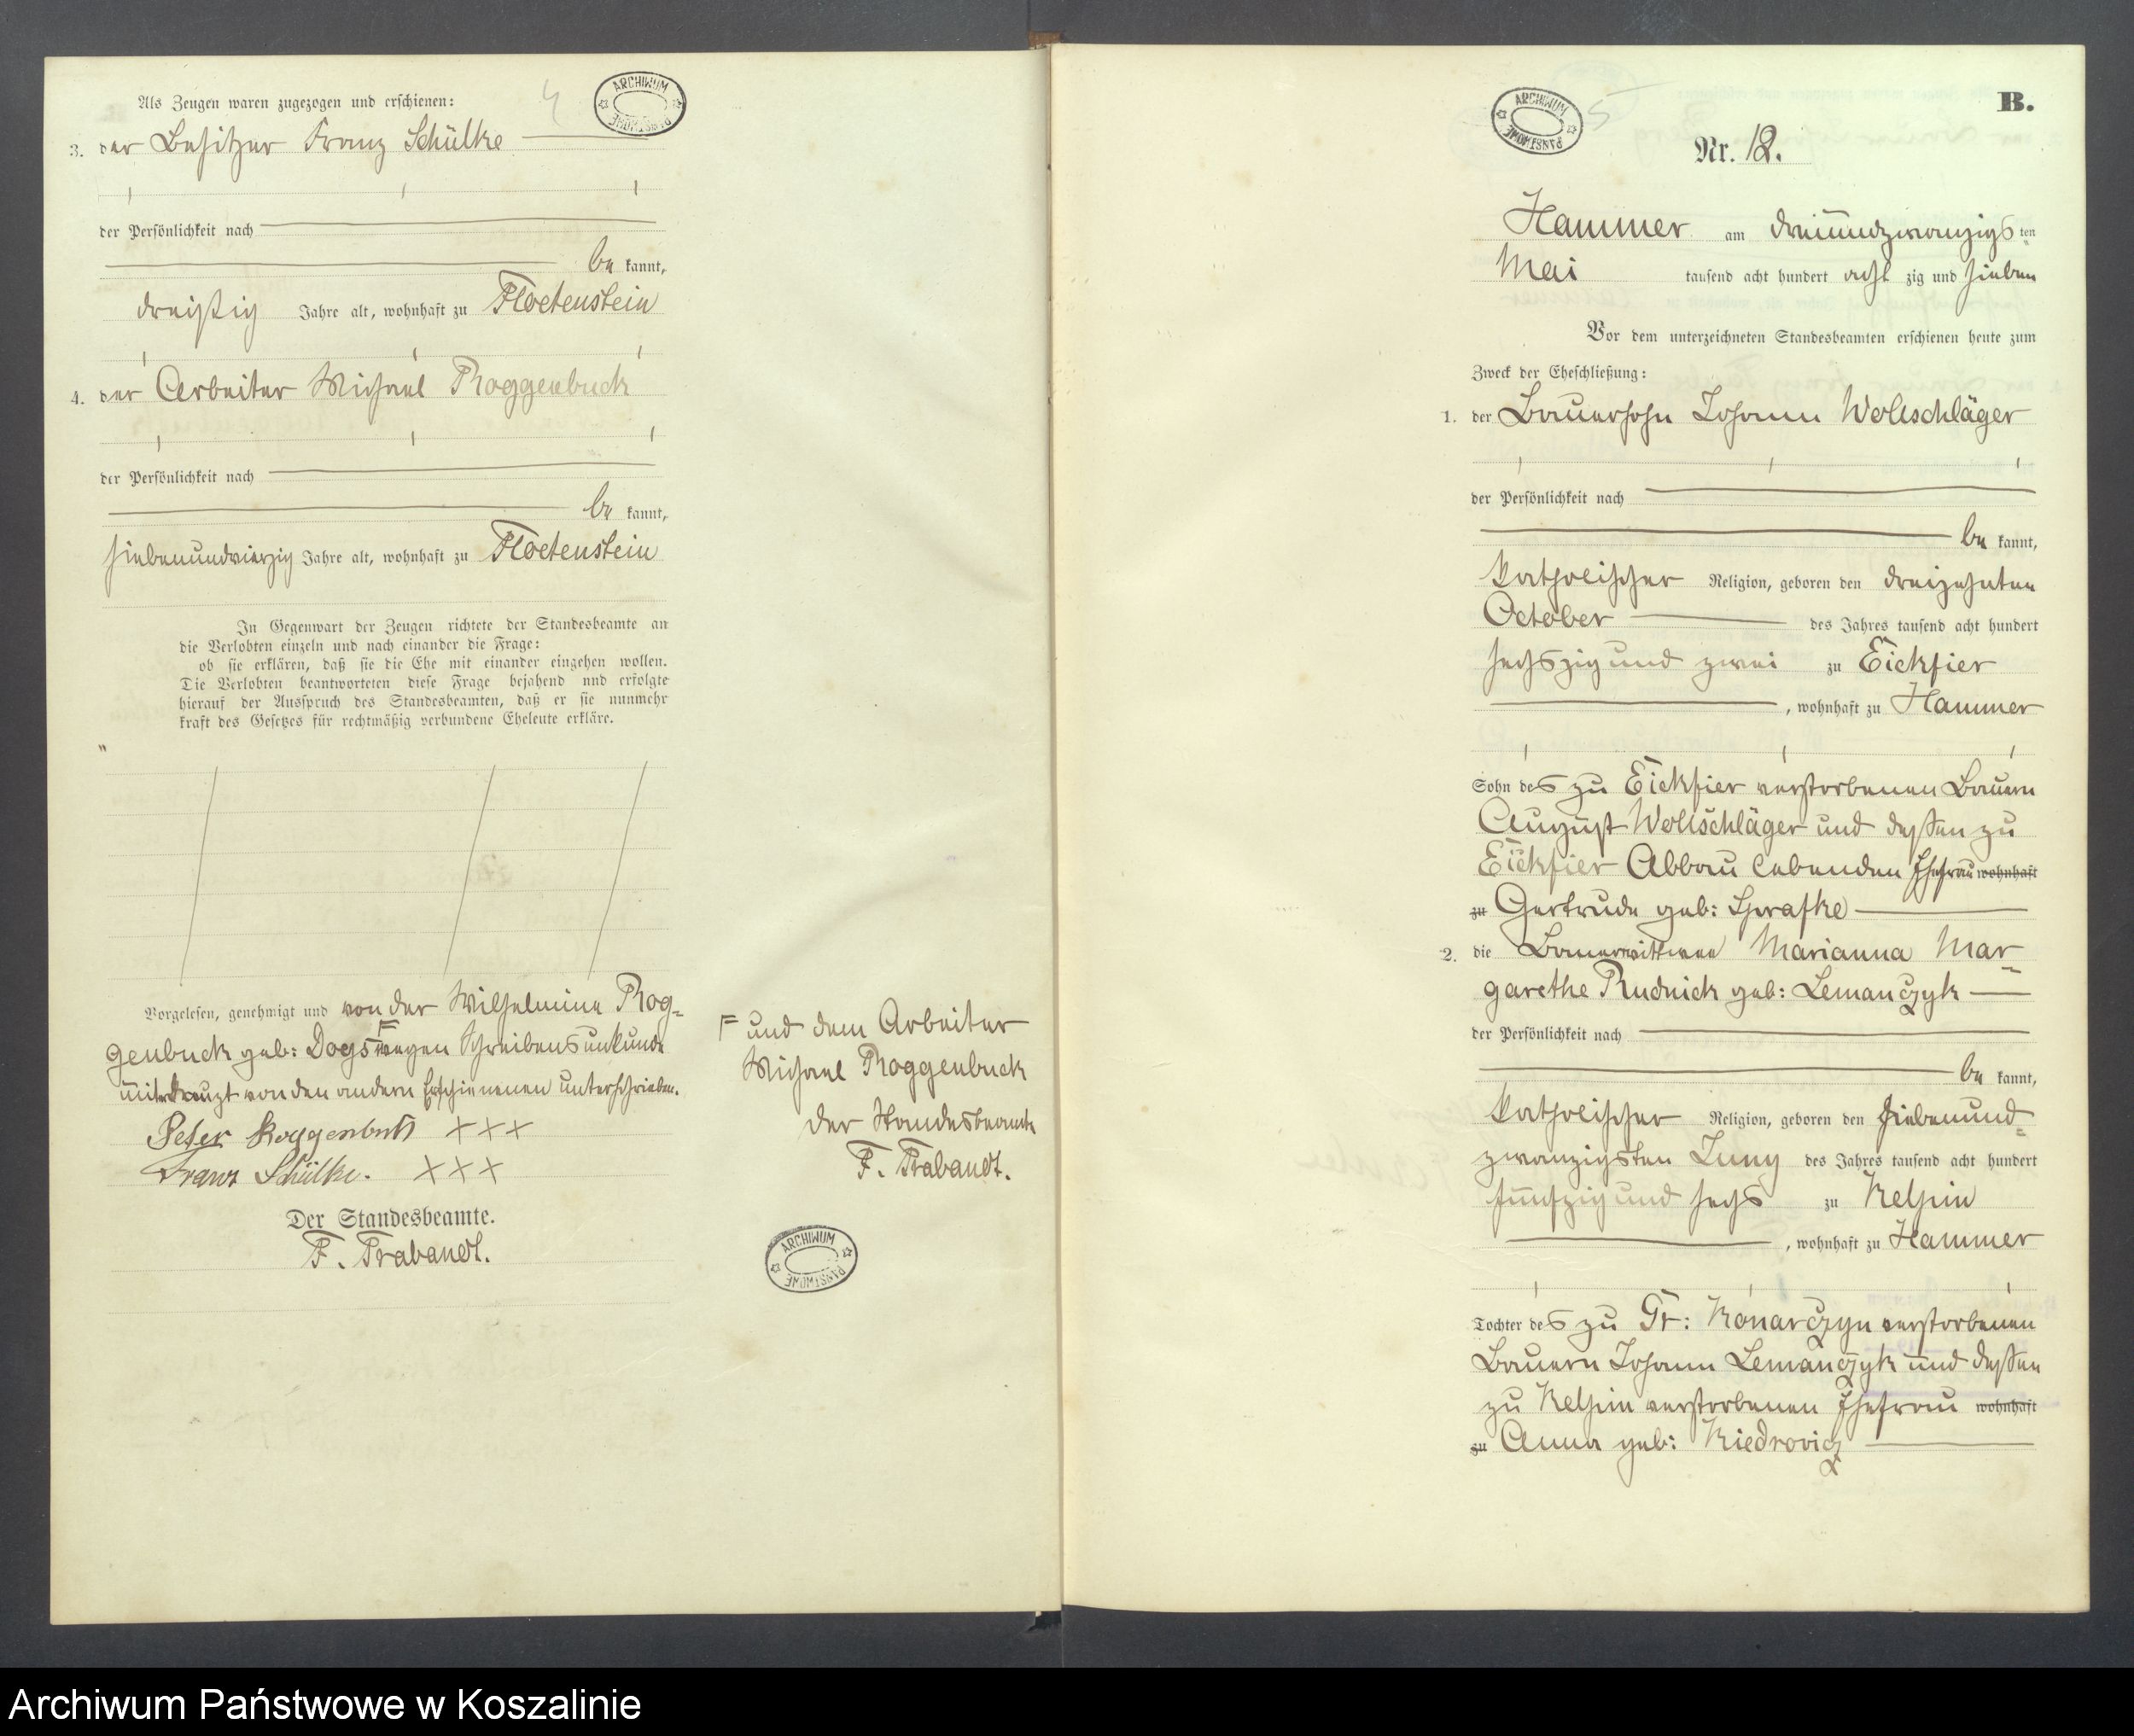 4
ARCHIWUM
PAŃSTWOWE
Als Zeugen waren zugezogen und erschienen:
3. der Besitzer Franz Schülke
der Persönlichkeit nach
be kannt,
dreißig Jahre alt, wohnhaft zu Floetenstein
4. der Arbeiter Michael Roggenbuck
der Persönlichkeit nach
be kannt,
siebenundvierzig Jahre alt, wohnhaft zu Floetenstein
In Gegenwart der Zeugen richtete der Standesbeamte an
die Verlobten einzeln und nach einander die Frage:
ob sie erklären, daß sie die Ehe mit einander eingehen wollen.
Die Verlobten beantworteten diese Frage bejahend und erfolgte
hierauf der Ausspruch des Standesbeamten, daß er sie nunmehr
kraft des Gesetzes für rechtmäßig verbundene Eheleute erkläre.
Vorgelesen, genehmigt und von der Wilhelmine Rog-
genbuck geb: Dogs wegen Schreibensunkunde
unterkreuzt von den andern Erschienenen unterschrieben.
Peter Roggenbuck +++
Franz Schülke. +++
Der Standesbeamte.
F. Trabandt.
und dem Arbeiter
Michael Roggenbuck
Der Standesbeamte
F. Trabandt.
ARCHIWUM
PAŃSTWOWE
ARCHIWUM
PAŃSTWOWE
5
B.
Nr. 12.
Hammer am dreiundzwanzigsten
Mai tausend acht hundert acht zig und sieben
Vor dem unterzeichneten Standesbeamten erschienen heute zum
Zweck der Eheschließung:
1. der Bauersohn Johann Wollschläger
der Persönlichkeit nach
be kannt,
katholischer Religion, geboren den dreizehnten
October des Jahres tausend acht hundert
sechszig und zwei zu Eickfier
, wohnhaft zu Hammer
Sohn des zu Eickfier verstorbenen Bauern
August Wollschläger und dessen zu
Eickfier Abbau lebenden Ehefrau wohnhaft
zu Gertrude geb:
2. die Bauerwittwe Marianna Mar-
garethe Rudnick geb: Lemanczyk
der Persönlichkeit nach
be kannt,
katholischer Religion, geboren den siebenund-
zwanzigsten Juny des Jahres tausend acht hundert
fünfzig und sechs zu Kelpin
, wohnhaft zu Hammer
Tochter des zu Gr: Konarczyn verstorbenen
Bauern Johann Lemanczyk und dessen
zu Kelpin verstorbenen Ehefrau wohnhaft
zu Anna geb: Kiedrovicz
Archiwum Państwowe w Koszalinie